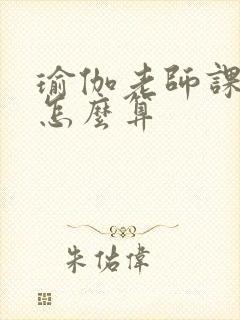 瑜伽老師課
怎麼算
朱佑偉